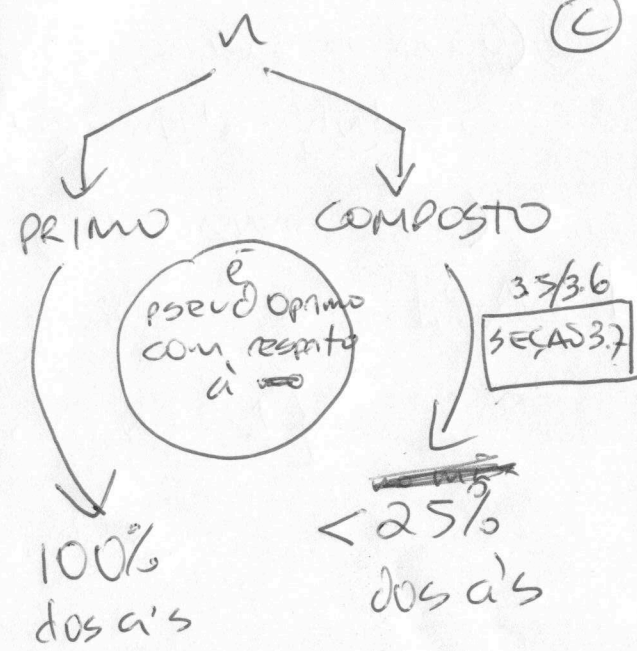 C
n
PRIMO
COMPOSTO
é
pseudoprimo
com respeito
a
3.5/3.6
SEÇÃO 3.7
100%
dos a's
<25%
dos a's